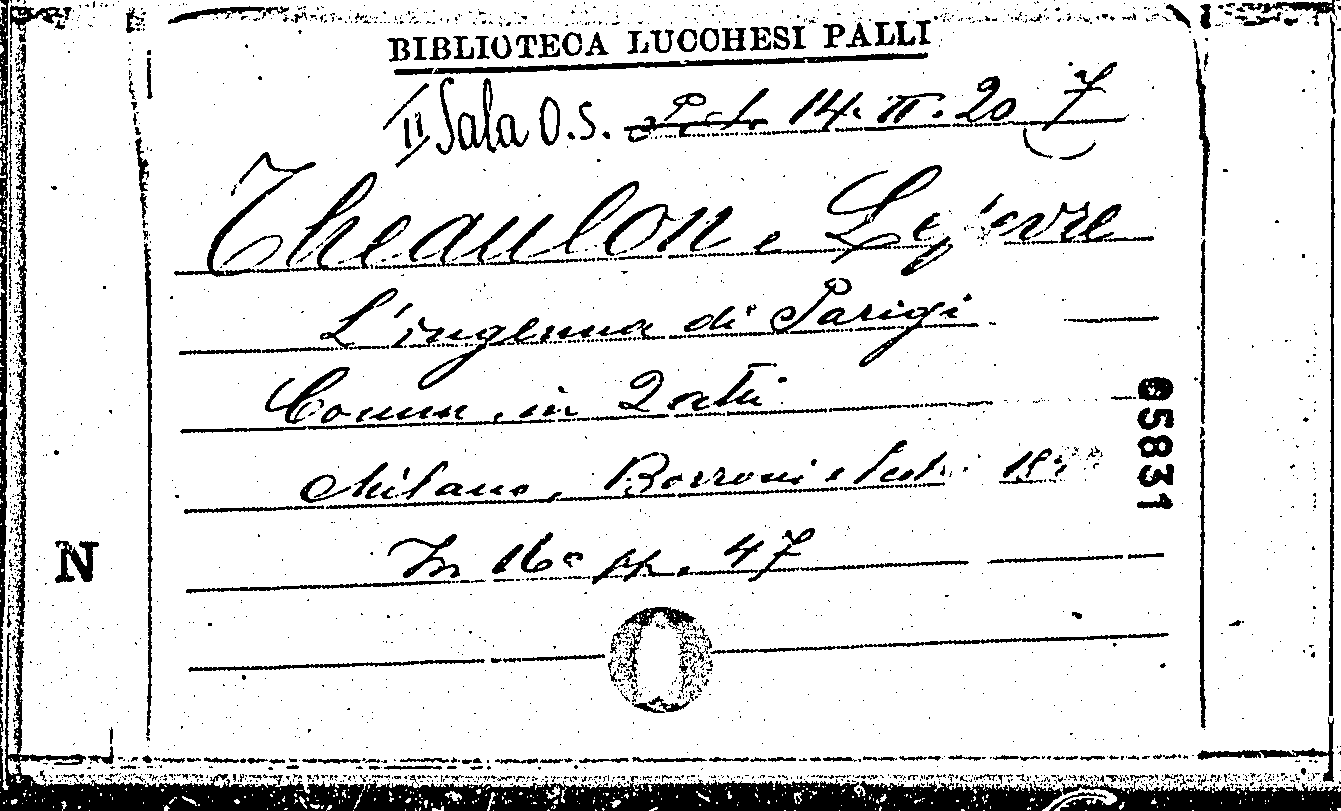 BIBLIOTECA LUCCHESI PALLI
II Sala O.S. 14. II. 20 7
Theaulon e Lefevre
L'ingenua di Parigi
Comm. in 2 atti
Milano, Borroni e Scotti
In 16° pp. 47
65831
N